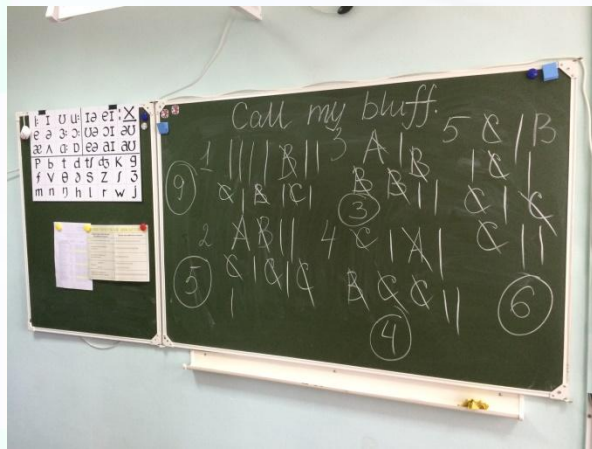 iː ɪ ʊ uː ɪə eɪ X
e ə ɜː ɔː ʊə ɔɪ əʊ
æ ʌ ɑː ɒ eə aɪ aʊ
p b t d tʃ dʒ k g
f v θ ð s z ʃ ʒ
m n ŋ h l r w j
Call my bluff.
1 | | | | B | |
C | B | C |
9
2 A B | |
C | C | C
|
5
3 A | B
B B | |
3
4 C | A |
B C C | |
4
5 C | B
| C |
C | C
C | |
6